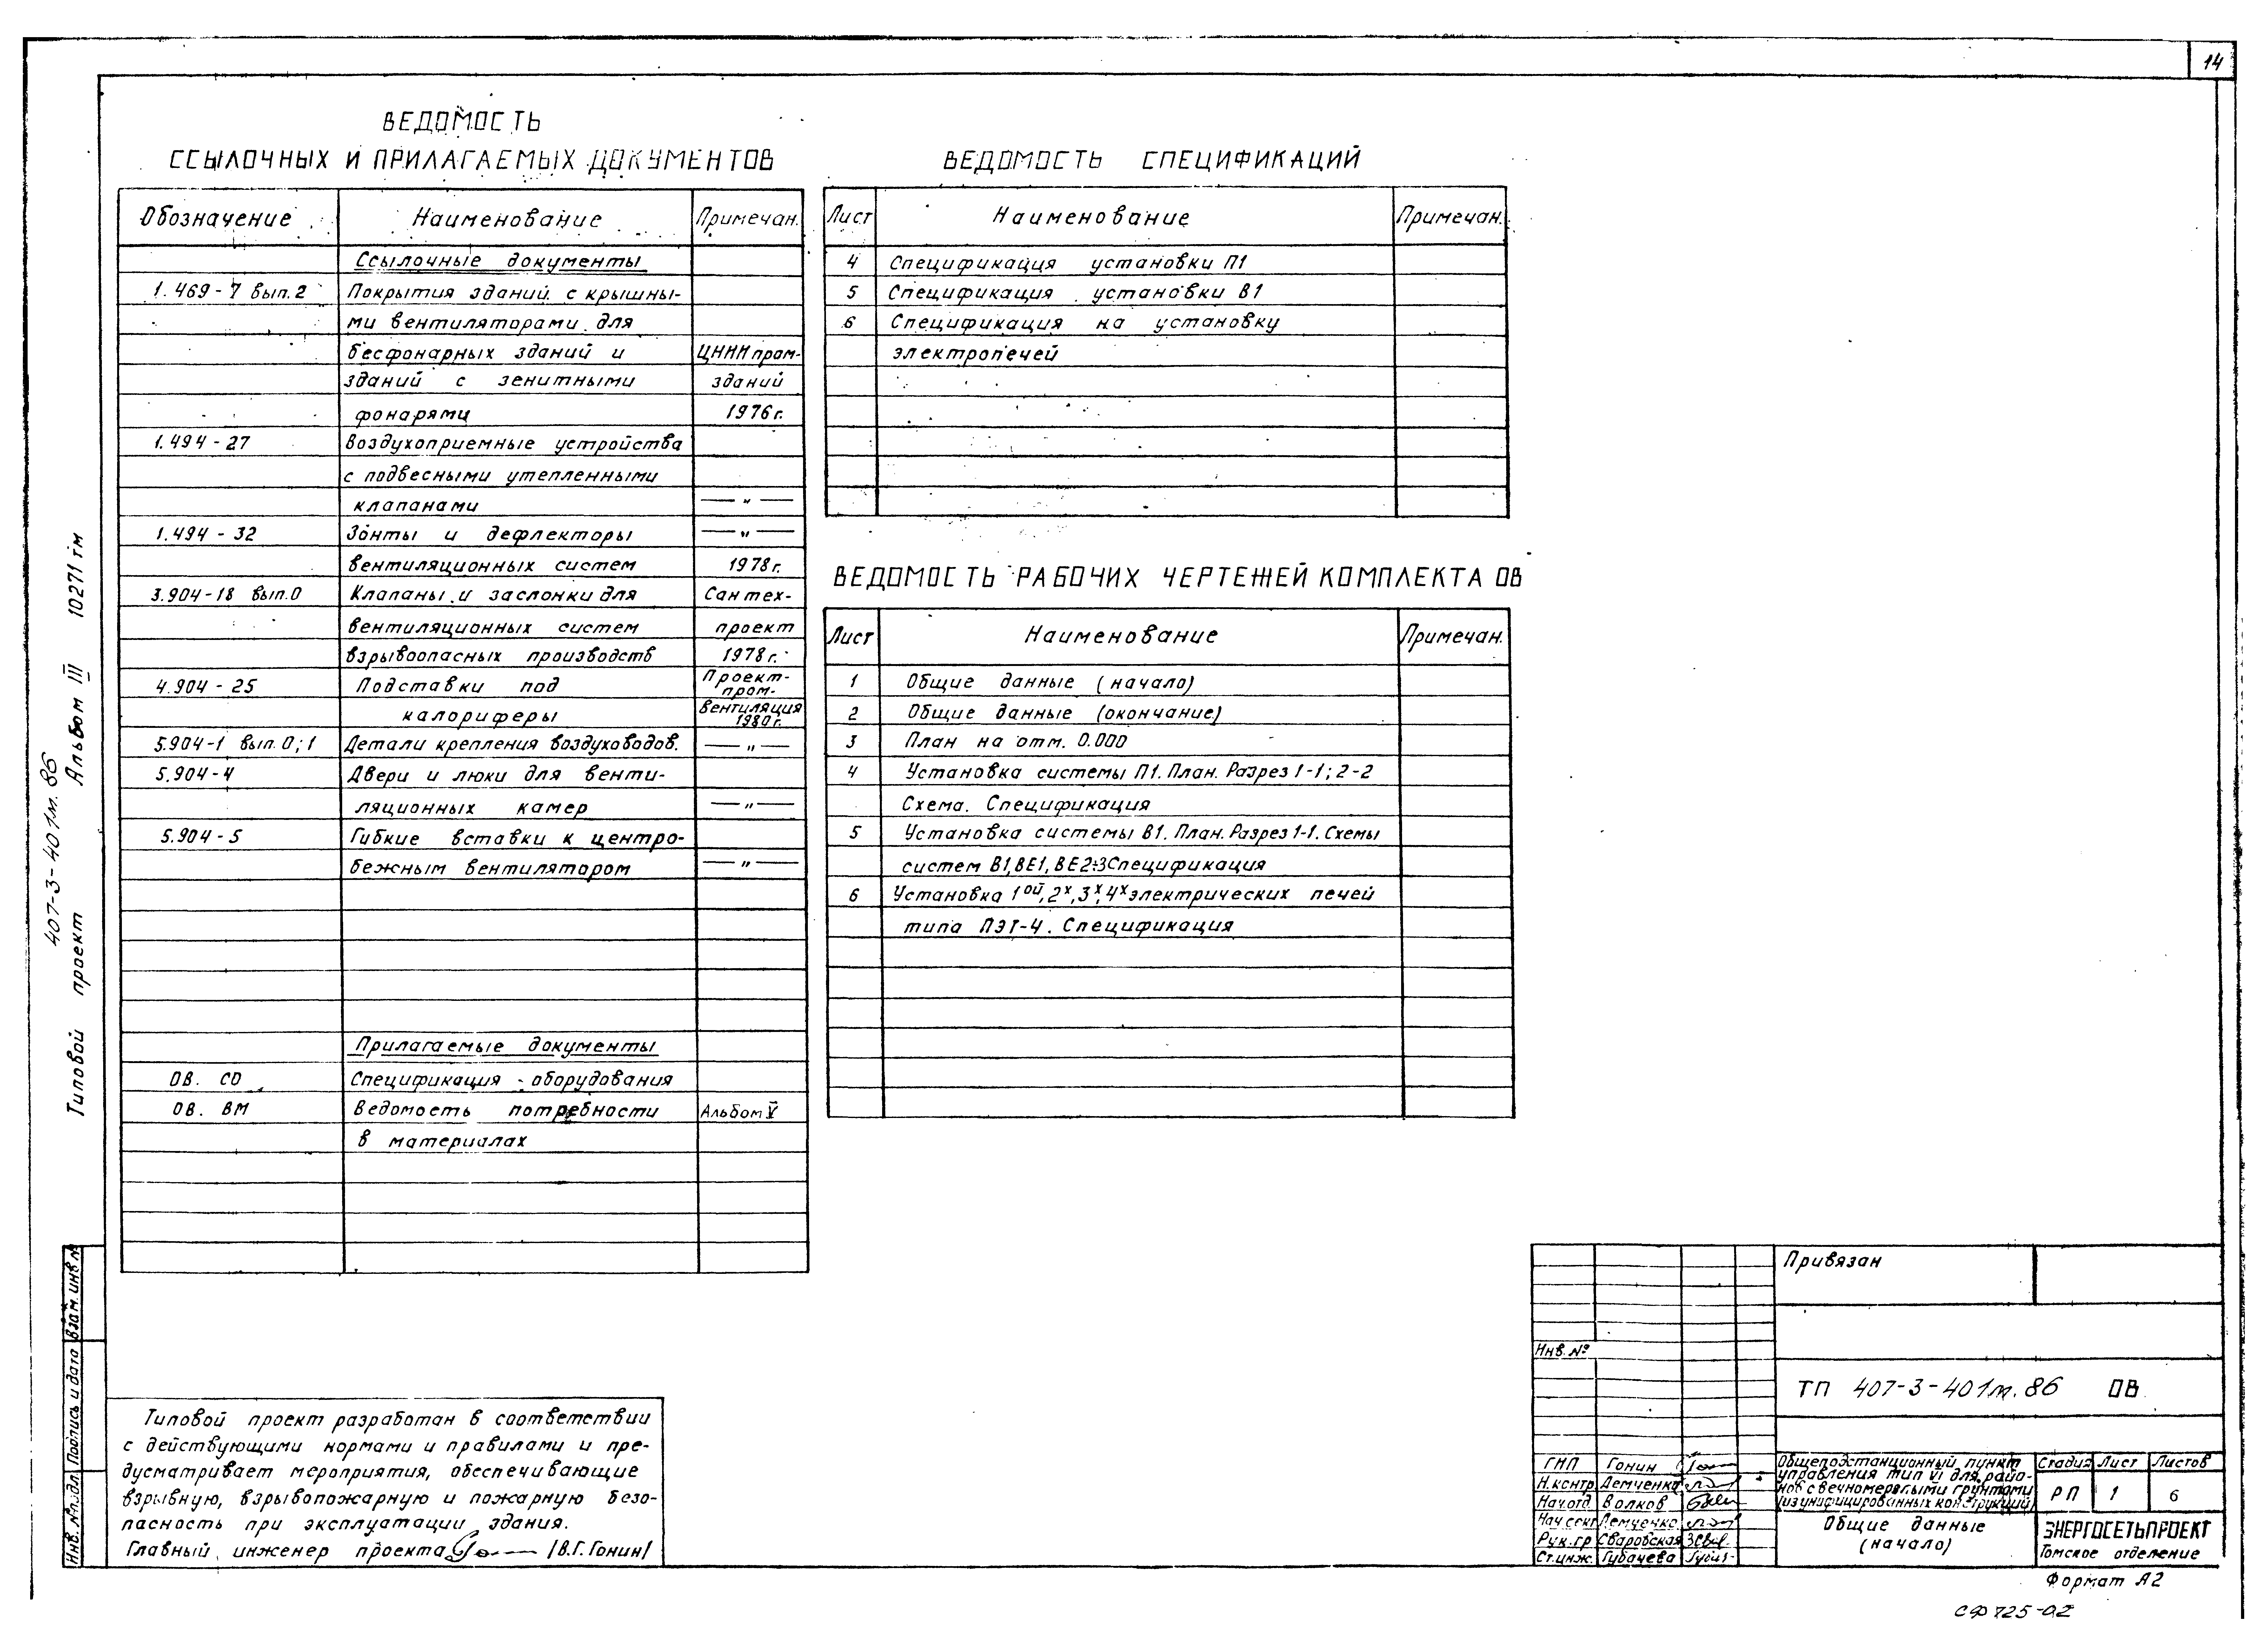 14
ВЕДОМОСТЬ
ССЫЛОЧНЫХ И ПРИЛАГАЕМЫХ ДОКУМЕНТОВ
Обозначение Наименование Примечан.
Ссылочные документы
1.469-7 вып.2 Покрытия зданий с крышны-
ми вентиляторами для
бесфонарных зданий и ЦНИИпром-
зданий с зенитными зданий
фонарями 1976г.
1.494-27 Воздухоприемные устройства
с подвесными утепленными
клапанами —"—
1.494-32 Зонты и дефлекторы —"—
вентиляционных систем 1978г.
3.904-18 вып.0 Клапаны и заслонки для Сантех-
вентиляционных систем проект
взрывоопасных производств 1978г.
4.904-25 Подставки под Проект-
пром-
калориферы вентиляция
1980г.
5.904-1 вып.0;1 Детали крепления воздуховодов. —"—
5.904-4 Двери и люки для венти-
ляционных камер —"—
5.904-5 Гибкие вставки к центро-
бежным вентилятором —"—
Прилагаемые документы
ОВ. СО Спецификация оборудования
ОВ. ВМ Ведомость потребности Альбом V
в материалах
ВЕДОМОСТЬ СПЕЦИФИКАЦИЙ
Лист Наименование Примечан.
4 Спецификация установки П1
5 Спецификация установки В1
6 Спецификация на установку
электропечей
ВЕДОМОСТЬ РАБОЧИХ ЧЕРТЕЖЕЙ КОМПЛЕКТА ОВ
Лист Наименование Примечан.
1 Общие данные (начало)
2 Общие данные (окончание)
3 План на отм. 0.000
4 Установка системы П1. План. Разрез 1-1; 2-2
Схема. Спецификация
5 Установка системы В1. План. Разрез 1-1. Схемы
систем В1, ВЕ1, ВЕ2÷3 Спецификация
6 Установка 1ой, 2х, 3х, 4х электрических печей
типа ПЭТ-4. Спецификация
Типовой проект 407-3-401м.86 Альбом III 10271тм
Взам. инв. №
Подпись и дата
Инв. № подл.
Типовой проект разработан в соответствии
с действующими нормами и правилами и пре-
дусматривает мероприятия, обеспечивающие
взрывную, взрывопожарную и пожарную безо-
пасность при эксплуатации здания.
Главный инженер проекта /В.Г. Гонин/
Привязан
Инв. №
ТП 407-3-401м.86 ОВ
ГИП Гонин
Н.контр Демченко
Нач.отд Волков
Нач сект Демченко
Рук.гр Сваровская
Ст.инж. Губачева
Общеподстанционный пункт
управления тип VI для райо-
нов с вечномерзлыми грунтами
(из унифицированных конструкций)
Стадия Лист Листов
РП 1 6
Общие данные
(начало)
ЭНЕРГОСЕТЬПРОЕКТ
Томское отделение
Формат А2
СФ 725-02